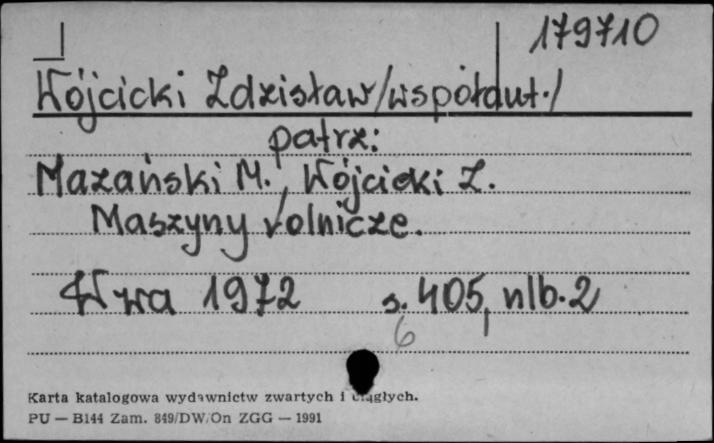 179710
Wójcicki Zdzisław/współaut./
patrz:
Mazański M., Wójcicki Z.
Maszyny rolnicze.
W-wa 1972 s. 405, nlb. 2
6
Karta katalogowa wydawnictw zwartych i ciągłych.
PU — B144 Zam. 849/DW/On ZGG — 1991